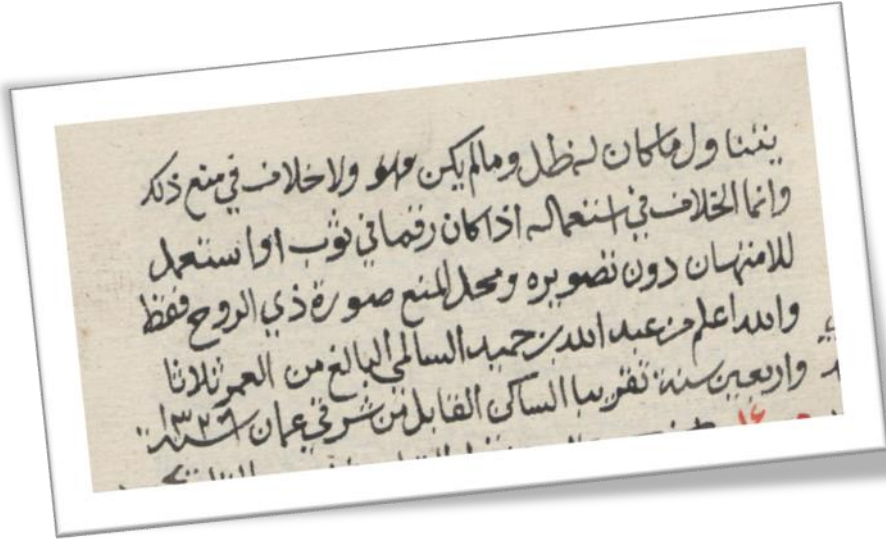 يتناول ما كان له ظل وما لم يكن ولا خلاف في منع ذلك
وانما الخلاف في استعماله اذا كان رقما في ثوب او استعمل
للامتهان دون تصويره ومحل المنع صورة ذي الروح فقط
والله اعلم من عبد الله بن حميد السالمي البالغ من العمر ثلاثا
واربعين سنة تقريبا الساكن القابل من شرقي عمان سنة ١٣٢٦